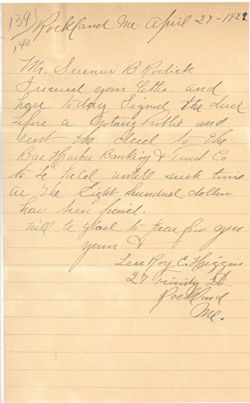 139/
140
Rockland Me April 27-1929
Mr. Serenus B Rodick
I received your letter and
have to day signed the deed
before a Notary Public and
sent the deed to the
Bar Harbor Banking & Trust Co
to be held untill such time
as the Eight hundred dollars
has been paid.
Will be glad to hear from you
yours
Lee Roy E. Higgins
27 Trinity St
Rockland
Me.